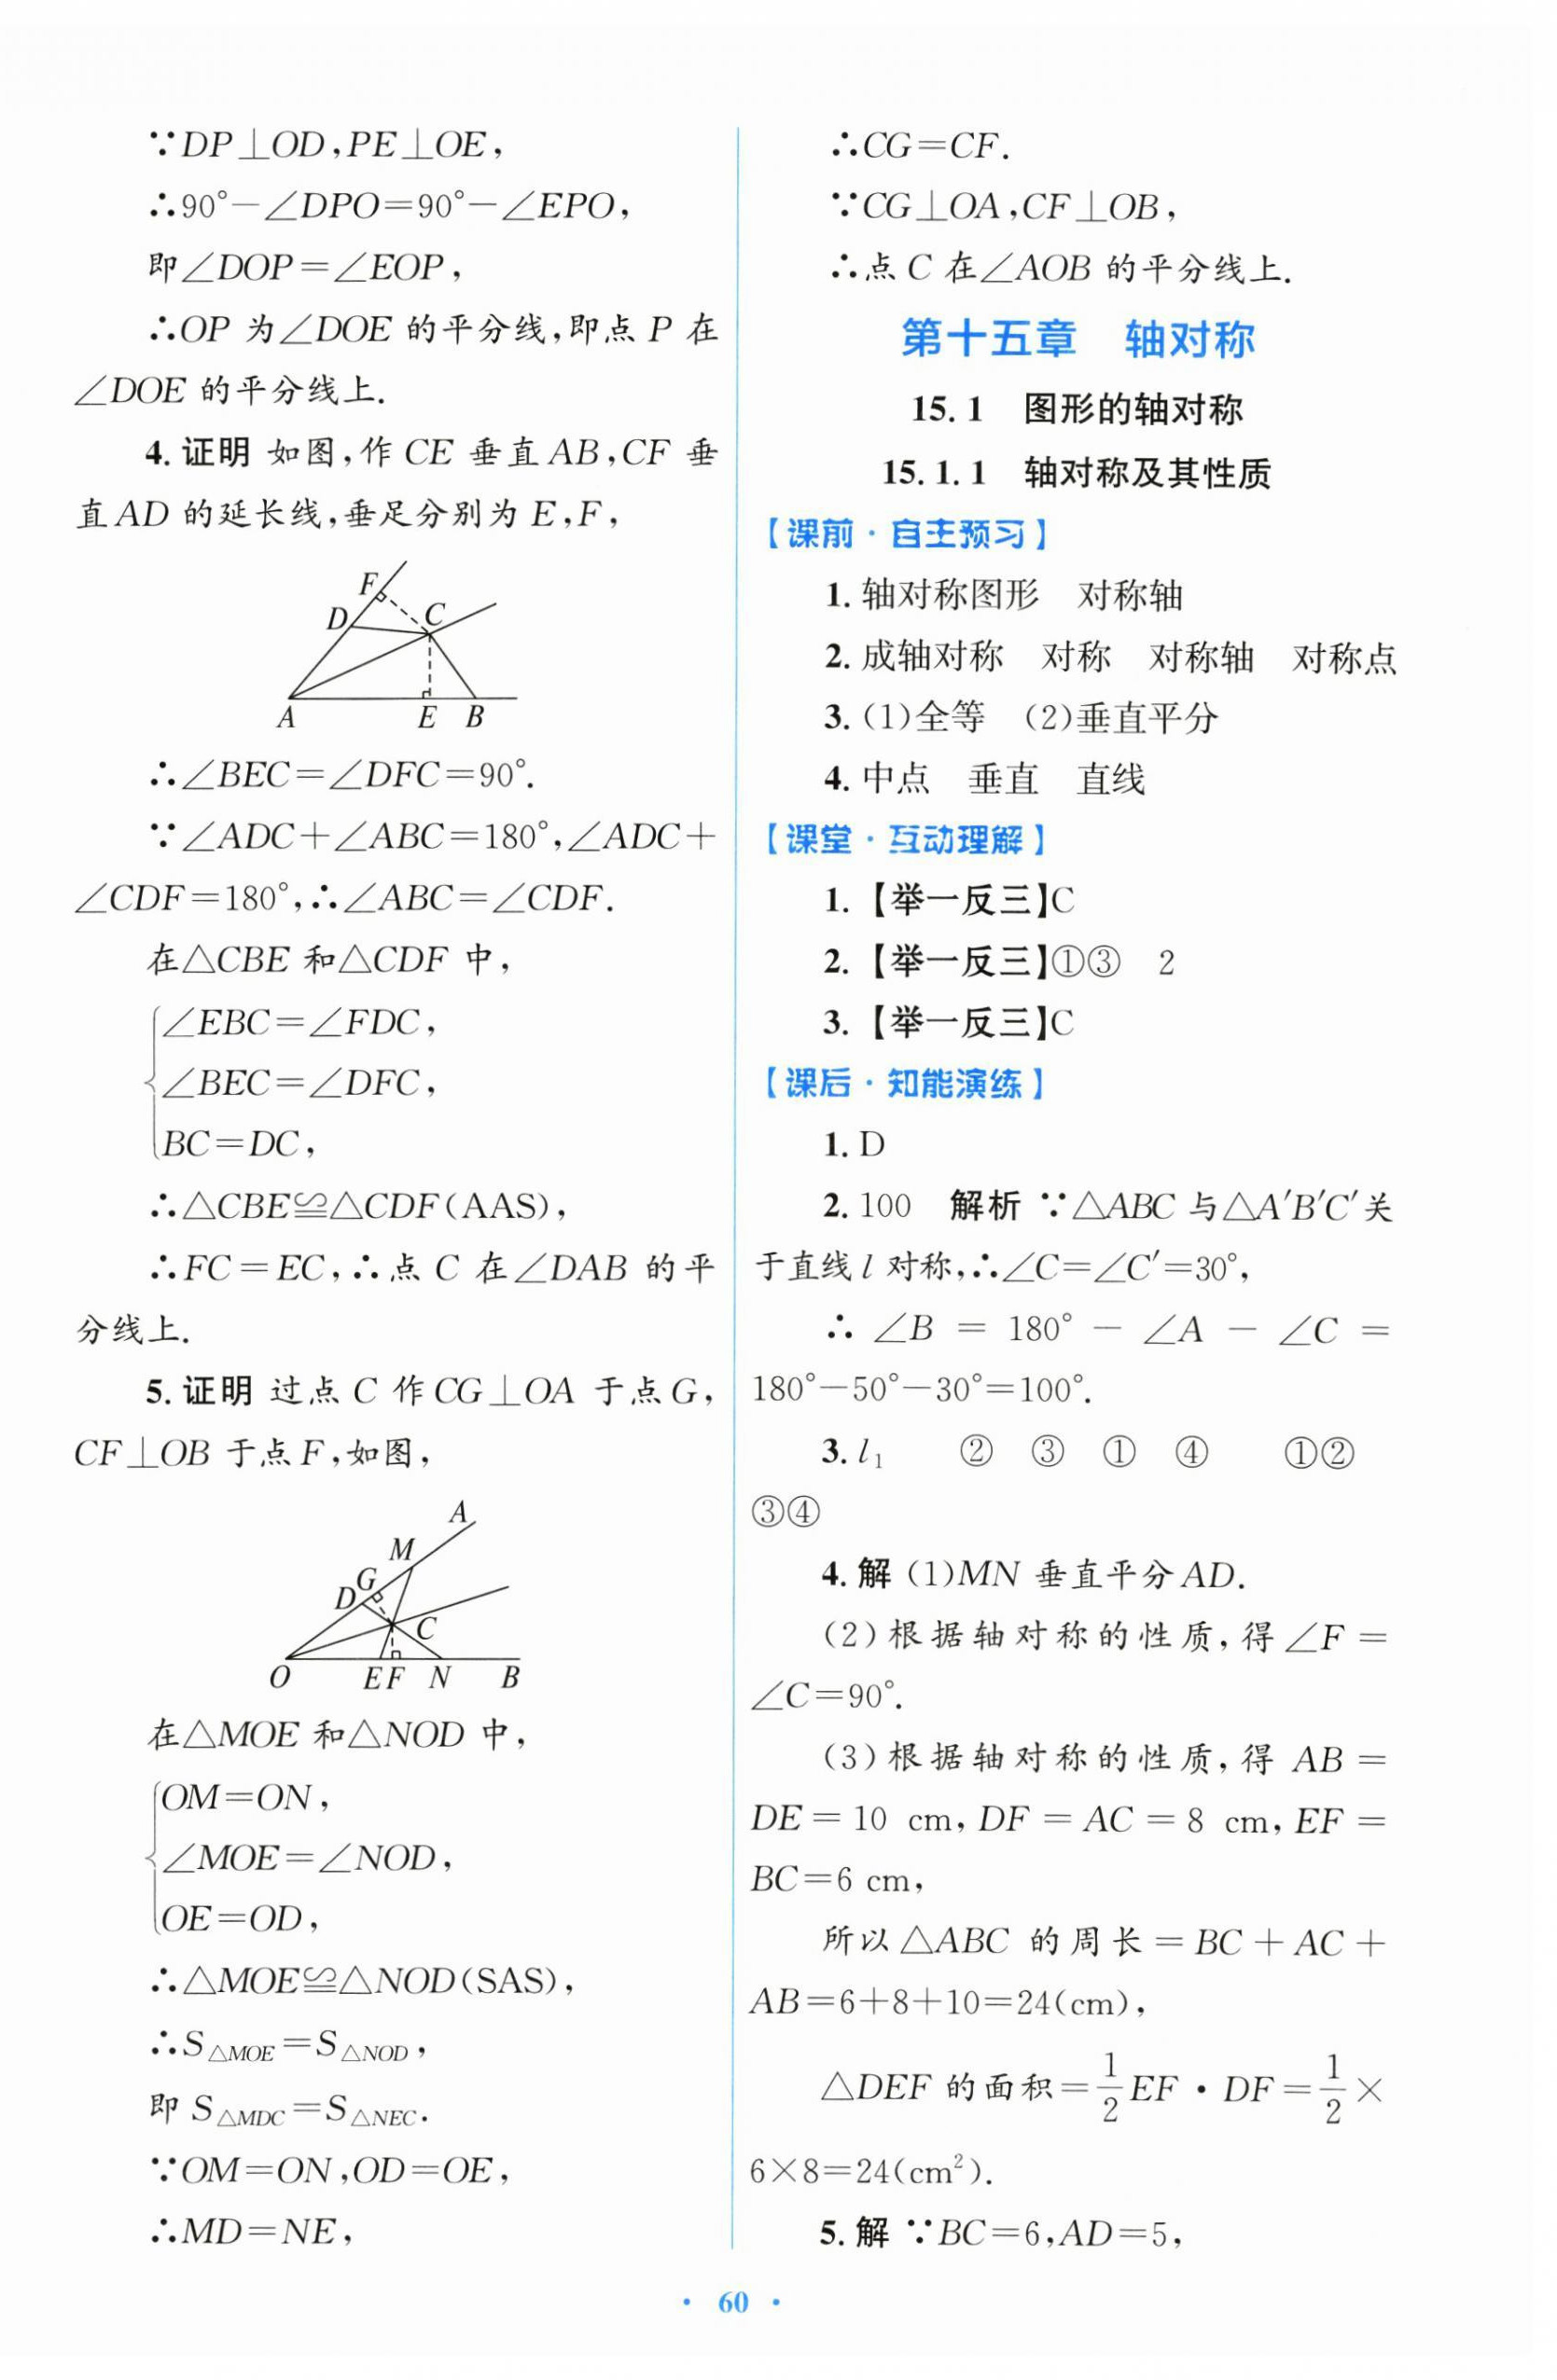 ∵DP⊥OD,PE⊥OE,
∴90°−∠DPO=90°−∠EPO,
即∠DOP=∠EOP,
∴OP 为∠DOE 的平分线,即点 P 在
∠DOE 的平分线上.
4. 证明 如图,作 CE 垂直 AB,CF 垂
直 AD 的延长线,垂足分别为 E,F,
F
D
C
A
E
B
∴∠BEC=∠DFC=90°.
∵∠ADC+∠ABC=180°,∠ADC+
∠CDF=180°,∴∠ABC=∠CDF.
在△CBE 和△CDF 中,
∠EBC=∠FDC,
∠BEC=∠DFC,
BC=DC,
∴△CBE≌△CDF(AAS),
∴FC=EC,∴点 C 在∠DAB 的平
分线上.
5. 证明 过点 C 作 CG⊥OA 于点 G,
CF⊥OB 于点 F,如图,
A
M
G
D
C
O
E F
N
B
在△MOE 和△NOD 中,
OM=ON,
∠MOE=∠NOD,
OE=OD,
∴△MOE≌△NOD(SAS),
∴S△MOE=S△NOD,
即 S△MDC=S△NEC.
∵OM=ON,OD=OE,
∴MD=NE,
∴CG=CF.
∵CG⊥OA,CF⊥OB,
∴点 C 在∠AOB 的平分线上.
第十五章 轴对称
15.1 图形的轴对称
15.1.1 轴对称及其性质
【课前·自主预习】
1. 轴对称图形 对称轴
2. 成轴对称 对称 对称轴 对称点
3. (1)全等 (2)垂直平分
4. 中点 垂直 直线
【课堂·互动理解】
1. 【举一反三】C
2. 【举一反三】①③ 2
3. 【举一反三】C
【课后·知能演练】
1. D
2. 100 解析 ∵△ABC 与△A′B′C′关
于直线 l 对称,∴∠C=∠C′=30°,
∴ ∠B = 180° − ∠A − ∠C =
180°−50°−30°=100°.
3. l₁ ② ③ ① ④ ①②
③④
4. 解 (1)MN 垂直平分 AD.
(2)根据轴对称的性质,得∠F=
∠C=90°.
(3)根据轴对称的性质,得 AB=
DE=10 cm,DF=AC=8 cm,EF=
BC=6 cm,
所以△ABC 的周长=BC+AC+
AB=6+8+10=24(cm),
△DEF 的面积=1/2 EF·DF=1/2×
6×8=24(cm²).
5. 解 ∵BC=6,AD=5,
· 60 ·